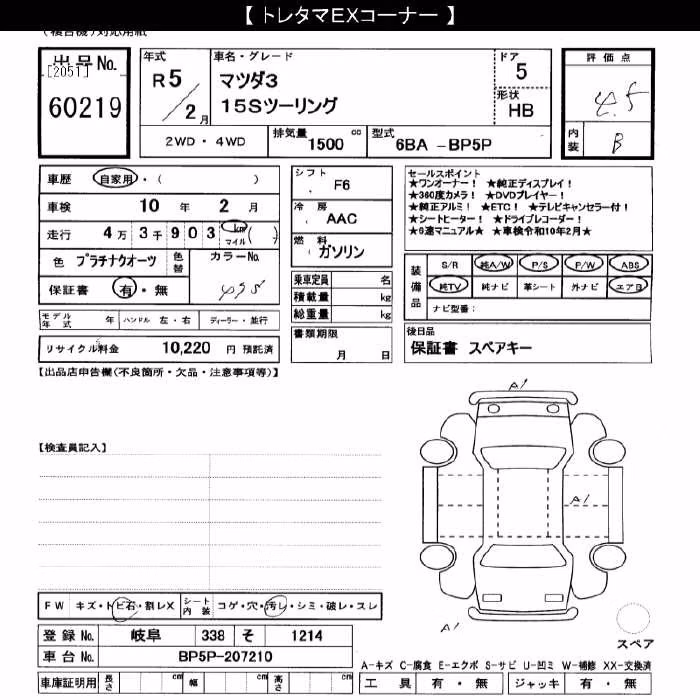 【 トレタマEXコーナー 】
(複合機)対応用紙
出品No.
[2051]
60219
年式
R5/2月
車名・グレード
マツダ3
15Sツーリング
ドア
5
形状
HB
評価点
4.5
内装
B
2WD・4WD
排気量 1500 cc
型式 6BA -BP5P
車歴 自家用・( )
車検 10年 2月
走行 4万3千903 km マイル ( )
色 プラチナクオーツ 色替 カラーNo.
保証書 有・無
モデル年式 年 ハンドル 左・右 ディーラー・並行
リサイクル料金 10,220 円 預託済
シフト F6
冷房 AAC
燃料 ガソリン
乗車定員 名
積載量 kg
総重量 kg
書類期限
月 日
セールスポイント
★ワンオーナー! ★純正ディスプレイ!
★360度カメラ! ★DVDプレイヤー!
★純正アルミ! ★ETC! ★テレビキャンセラー付!
★シートヒーター! ★ドライブレコーダー!
★6速マニュアル★ ★車検令和10年2月★
装備品
S/R 純A/W P/S P/W ABS
純TV 純ナビ 革シート 外ナビ エアB
ナビ型番:
後日品
保証書 スペアキー
【出品店申告欄(不良箇所・欠品・注意事項等)】
【検査員記入】
A1
A1
A1
スペア
FW キズ・トビ石・割レX シート内装 コゲ・穴・汚レ・シミ・破レ・スレ
登録No. 岐阜 338 そ 1214
車台No. BP5P-207210
A-キズ C-腐食 E-エクボ S-サビ U-凹ミ W-補修 XX-交換済
車庫証明用 長さ cm 幅 cm 高さ cm 工具 有・無 ジャッキ 有・無